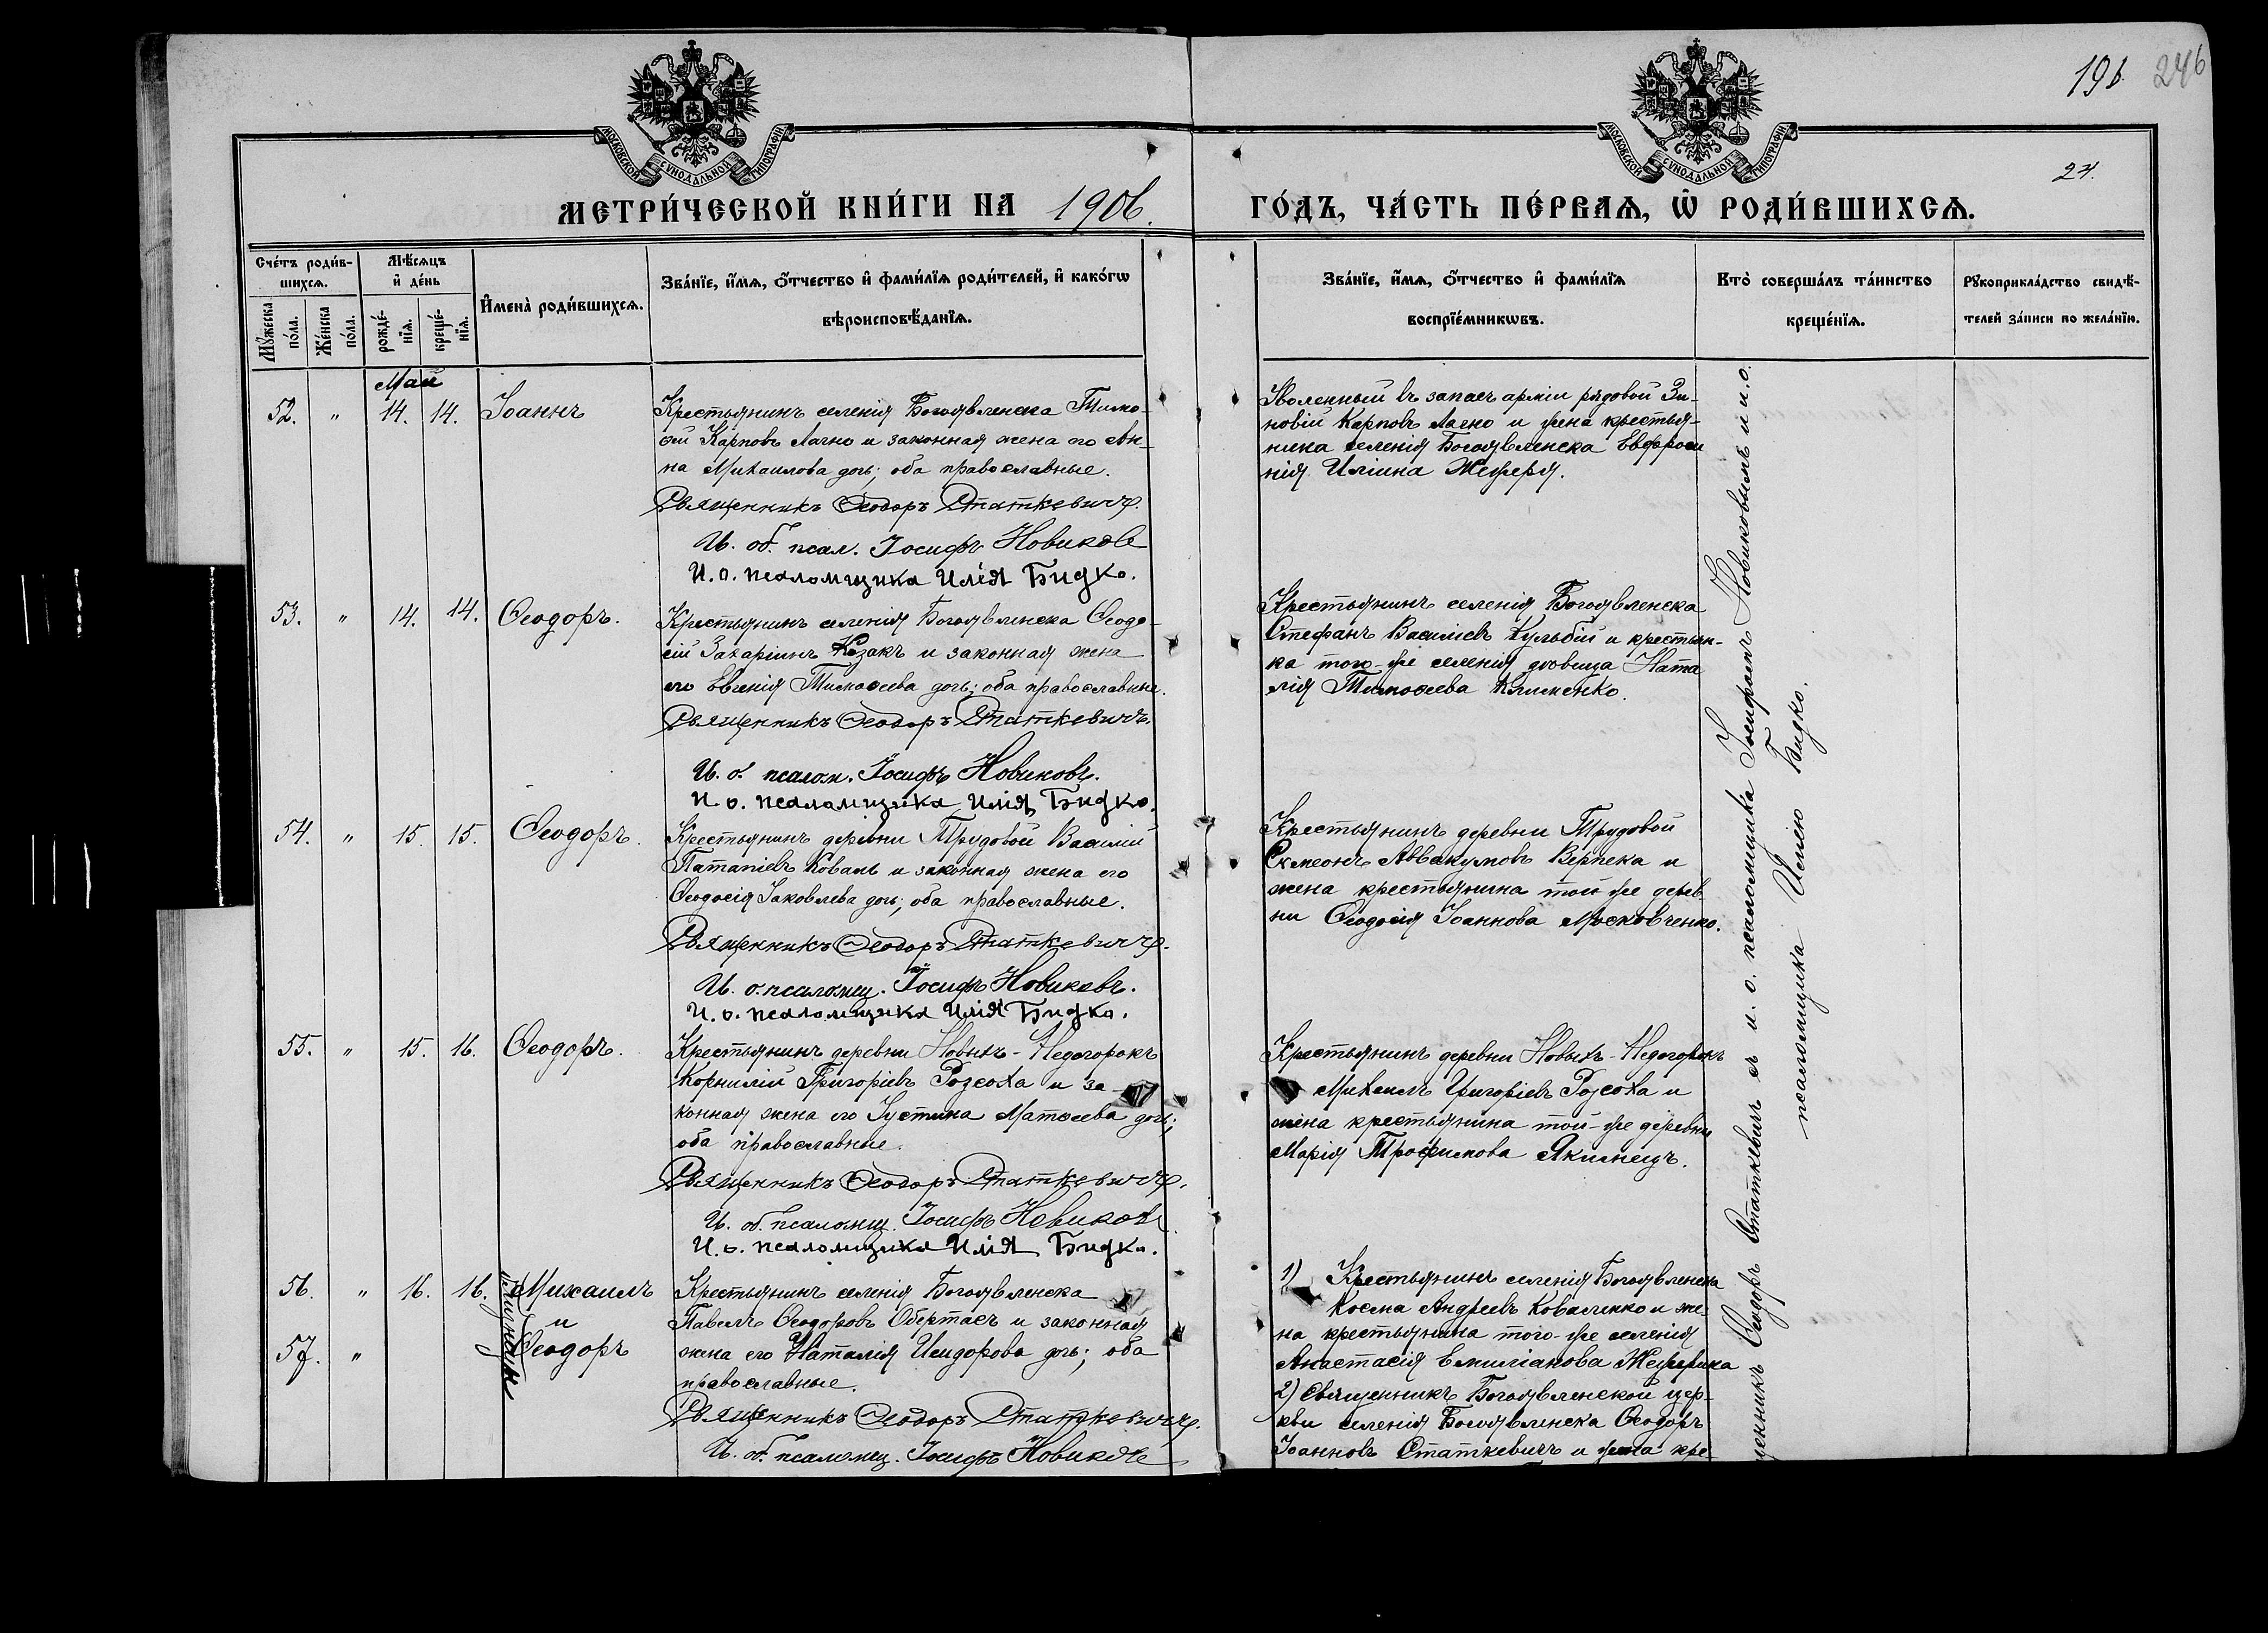 196 246
24.
МОСКОВСКОЙ СУНОДАЛЬНОЙ ТИПОГРАФІИ
МОСКОВСКОЙ СУНОДАЛЬНОЙ ТИПОГРАФІИ
МЕТРИ́ЧЕСКОЙ КНИ́ГИ НА 1906.
ГО́ДЪ, ЧА́СТЬ ПЕ́РВАѦ, Ѡ҆ РОДИ́ВШИХСѦ.
Сче́тъ роди́в-
шихсѧ.
Мꙋ́жеска по́ла.
Же́нска по́ла.
Мѣ́сѧцъ
и҆ де́нь
рожде́-
нїѧ.
креще́-
нїѧ.
И҆мена̀ роди́вшихсѧ.
Зва́нїе, и҆́мѧ, ѻ҆́тчество и҆ фами́лїѧ роди́телей, и҆ како́гѡ
вѣроисповѣ́данїѧ.
Зва́нїе, и҆́мѧ, ѻ҆́тчество и҆ фами́лїѧ
воспрїе́мникѡвъ.
Кто̀ соверша́лъ та́инство
креще́нїѧ.
Рꙋкоприкла́дство свидѣ́-
телей за́писи по жела́нїю.
Май
52. " 14. 14. Іоаннъ
Крестьянинъ селенія Богоявленска Тимо-
ѳей Карповъ Лагно и законная жена его Ан-
на Михаилова дочь; оба православные.
Священникъ Ѳеодоръ Статкевичъ.
И. об. псал. Іосифъ Новиковъ
И. о. псаломщика Илія Бидко.
Уволенный въ запасъ арміи рядовой Зи-
новій Карповъ Лагно и жена крестья-
нина селенія Богоявленска Евфроси
нія Иліина Жежеря.
53. " 14. 14. Ѳеодоръ.
Крестьянинъ селенія Богоявленска Ѳеодо-
сій Захаріинъ Козакъ и законная жена
его Евгенія Тимоѳеева дочь; оба православные.
Священникъ Ѳеодоръ Статкевичъ.
И. о. псалом. Іосифъ Новиковъ.
И о. псаломщика Илія Бидко.
Крестьянинъ селенія Богоявленска
Стефанъ Василіевъ Кульбій и крестьян-
ка того-же селенія дѣвица Ната
лія Тимоѳеева Клименко.
54. " 15. 15. Ѳеодоръ.
Крестьянинъ деревни Трудовой Василій
Патапіевъ Коваль и законная жена его
Ѳеодосія Іаковлева дочь; оба православные.
Священникъ Ѳеодоръ Статкевичъ.
И. о. псаломщ. Іосифъ Новиковъ.
И. о. псаломщика Илія Бидко.
Крестьянинъ деревни Трудовой
Симеонъ Аввакумовъ Верпека и
жена крестьянина той же дерев-
ни Ѳеодосія Іоаннова Московченко.
55. " 15. 16. Ѳеодоръ.
Крестьянинъ деревни Новыхъ-Недогорокъ
Корнилій Григоріевъ Розсоха и за
конная жена его Іустина Матѳеева дочь;
оба православные.
Священникъ Ѳеодоръ Статкевичъ.
И. об. псаломщ. Іосифъ Новиковъ
И. о. псаломщика Илія Бидко.
Крестьянинъ деревни Новыхъ-Недогорокъ
Михаилъ Григоріевъ Розсоха и
жена крестьянина той-же деревни
Марія Трофимова Якимецъ.
56. " 16. 16. Михаилъ
и
57. " Ѳеодоръ
близнецы
Крестьянинъ селенія Богоявленска
Павелъ Ѳеодоровъ Обертасъ и законная
жена его Наталія Исидорова дочь; оба
православные.
Священникъ Ѳеодоръ Статкевичъ.
И. об. псаломщ. Іосифъ Новиковъ
1) Крестьянинъ селенія Богоявленска
Косма Андреевъ Коваленко и же-
на крестьянина того-же селенія
Анастасія Емиліанова
2) Священникъ Богоявленской цер-
кви селенія Богоявленска Ѳеодоръ
Іоанновъ Статкевичъ и жена кре-
щенникъ Ѳеодоръ Статкевичъ съ и. о. псаломщика Іосифомъ Новиковымъ и и. о.
псаломщика Иліею Бидко.